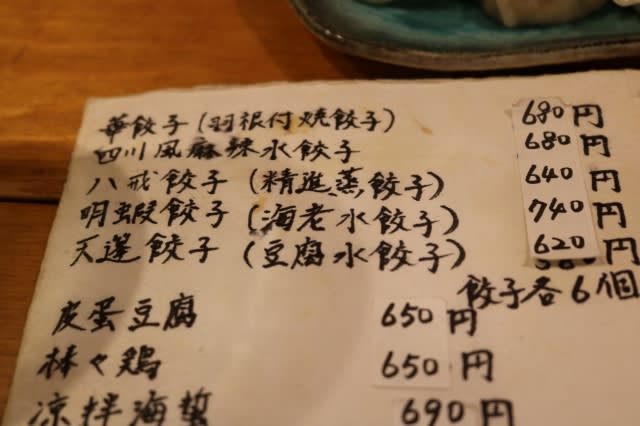 華餃子(羽根付焼餃子) 680円
四川風麻辣水餃子 680円
八戒餃子(精進蒸餃子) 640円
明蝦餃子(海老水餃子) 740円
天蓬餃子(豆腐水餃子) 620円
餃子各6個
皮蛋豆腐 650円
棒々鶏 650円
涼拌海蜇 690円